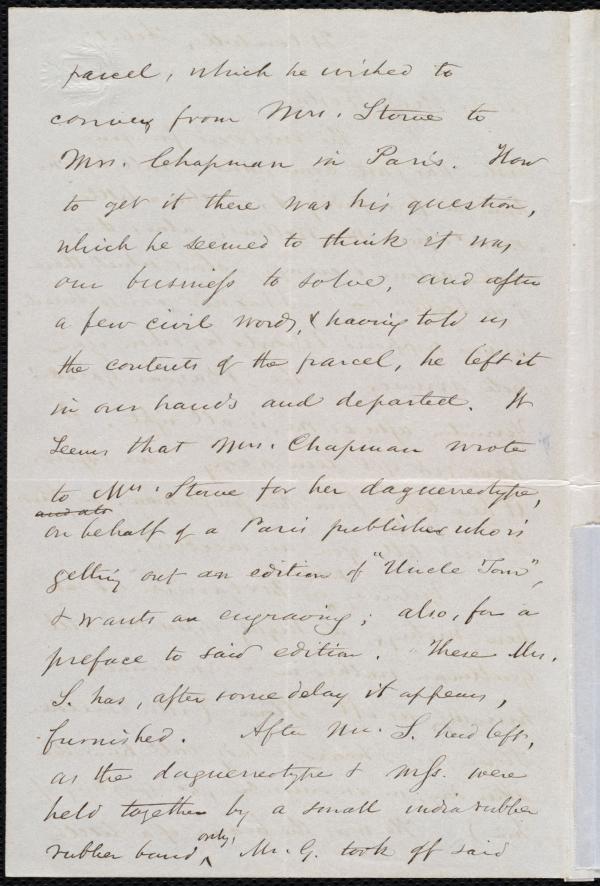 parcel, which he wished to
convey from Mrs. Stowe to
Mrs. Chapman in Paris. How
to get it there was his question,
which he seemed to think it was
our business to solve, and after
a few civil words, & having told us
the contents of the parcel, he left it
in our hands and departed. It
seems that Mrs. Chapman wrote
to Mrs. Stowe for her daguerreotype,
and als
on behalf of a Paris publisher who is
getting out an edition of "Uncle Tom",
& wants an engraving; also, for a
preface to said edition. These Mrs.
S. has, after some delay it appears,
furnished. After Mr. S. had left,
as the daguerreotype & mss. were
held together by a small india rubber
rubber band, only, Mr. G. took off said